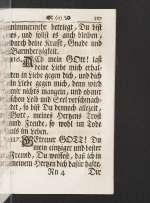 nimmermehr beteigt, Du bist
es, und sollst es auch bleiben,
durch deine Krafft, Gnade und
Barmhertzigkeit.
Ach mein GOtt! laß
deine Liebe mich erhal-
in Liebe gegen dich, und dich
in Liebe gegen mich, denn wird
mir nichts mangeln, und ob mir
schon Leib und Seel verschmach-
tet, so bist Du dennoch allezeit,
Gott, meines Hertzens Trost
und Freude, so wohl im Tode
als im Leben.
Getreuer GOTT! Du
mein einziger und bester
Freund, Du weissest, daß ich in
meinem Hertzen dich dafür halte,
Nn 4 Dir